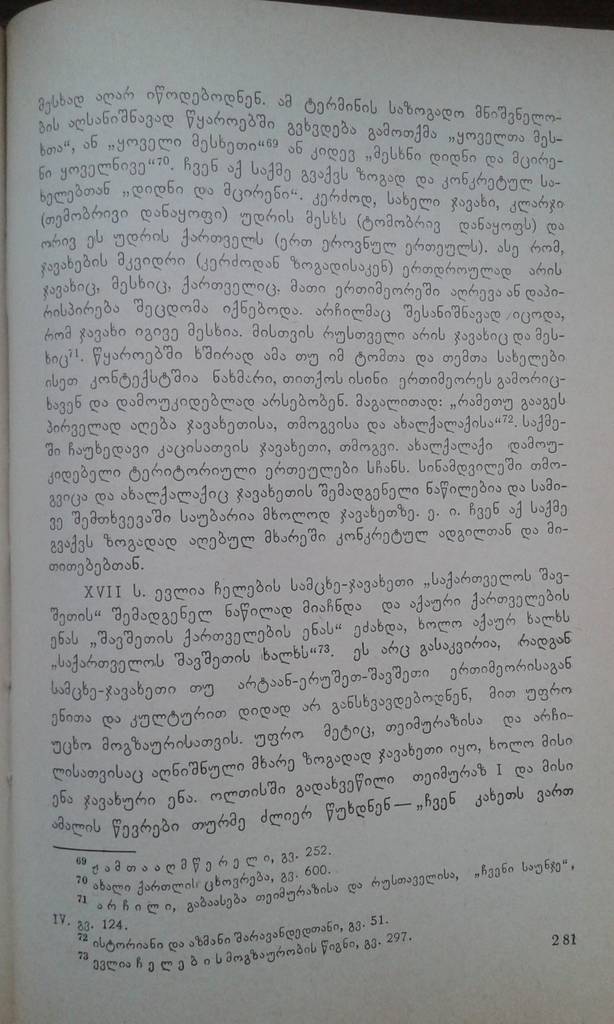 მესხად აღარ იწოდებოდნენ. ამ ტერმინის საზოგადო მნიშვნელო-
ბის აღსანიშნავად წყაროებში გვხვდება გამოთქმა „ყოველთა მეს-
ხთა“, ან „ყოველი მესხეთი“⁶⁹ ან კიდევ „მესხნი დიდნი და მცირე-
ნი ყოველნივე“⁷⁰. ჩვენ აქ საქმე გვაქვს ზოგად და კონკრეტულ სა-
ხელებთან „დიდნი და მცირენი“. კერძოდ, სახელი ჯავახი, კლარჯი
(თემობრივი დანაყოფი) უდრის მესხს (ტომობრივ დანაყოფს) და
ორივ ეს უდრის ქართველს (ერთ ეროვნულ ერთეულს). ასე რომ,
ჯავახების მკვიდრი (კერძოდან ზოგადისაკენ) ერთდროულად არის
ჯავახიც, მესხიც, ქართველიც. მათი ერთიმეორეში აღრევა ან დაპი-
რისპირება შეცდომა იქნებოდა. არჩილმაც შესანიშნავად იცოდა,
რომ ჯავახი იგივე მესხია. მისთვის რუსთველი არის ჯავახიც და მეს-
ხიც⁷¹. წყაროებში ხშირად ამა თუ იმ ტომთა და თემთა სახელები
ისეთ კონტექსტშია ნახმარი, თითქოს ისინი ერთიმეორეს გამორიც-
ხავენ და დამოუკიდებლად არსებობენ. მაგალითად: „რამეთუ გააგეს
პირველად აღება ჯავახეთისა, თმოგვისა და ახალქალაქისა“⁷². საქმე-
ში ჩაუხედავი კაცისათვის ჯავახეთი, თმოგვი. ახალქალაქი დამოუ-
კიდებელი ტერიტორიული ერთეულები სჩანს. სინამდვილეში თმო-
გვიცა და ახალქალაქიც ჯავახეთის შემადგენელი ნაწილებია და სამი-
ვე შემთხვევაში საუბარია მხოლოდ ჯავახეთზე. ე. ი. ჩვენ აქ საქმე
გვაქვს ზოგადად აღებულ მხარეში კონკრეტულ ადგილთან და მი-
თითებებთან.
XVII ს. ევლია ჩელების სამცხე-ჯავახეთი „საქართველოს შავ-
შეთის“ შემადგენელ ნაწილად მიაჩნდა და აქაური ქართველების
ენას „შავშეთის ქართველების ენას“ ეძახდა, ხოლო აქაურ ხალხს
„საქართველოს შავშეთის ხალხს“⁷³. ეს არც გასაკვირია, რადგან
სამცხე-ჯავახეთი თუ არტაან-ერუშეთ-შავშეთი ერთიმეორისაგან
ენითა და კულტურით დიდად არ განსხვავდებოდნენ, მით უფრო
უცხო მოგზაურისათვის. უფრო მეტიც, თეიმურაზისა და არჩი-
ლისათვისაც აღნიშნული მხარე ზოგადად ჯავახეთი იყო, ხოლო მისი
ენა ჯავახური ენა. ოლთისში გადახვეწილი თეიმურაზ I და მისი
ამალის წევრები თურმე ძლიერ წუხდნენ — „ჩვენ კახეთს ვართ
⁶⁹ ჟამთააღმწერელი, გვ. 252.
⁷⁰ ახალი ქართლის ცხოვრება, გვ. 600.
⁷¹ არჩილი, გაბაასება თეიმურაზისა და რუსთაველისა, „ჩვენი საუნჯე“,
IV. გვ. 124.
⁷² ისტორიანი და აზმანი შარავანდედთანი, გვ. 51.
⁷³ ევლია ჩელების მოგზაურობის წიგნი, გვ. 297.
281